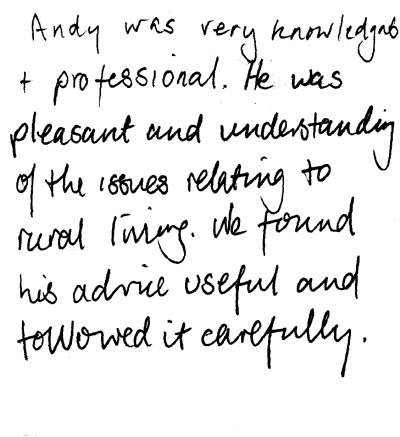 Andy was very knowledgab
+ professional. He was
pleasant and understanding
of the issues relating to
rural living. We found
his advice useful and
followed it carefully.